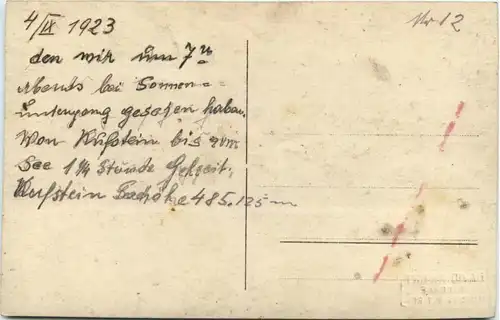 4/IX 1923
Nr 12
den wir um 7 u
Abends bei Sonnen-
untergang gesehen haben.
Von Kufstein bis zum
See 1 1/4 Stunde Gehzeit.
Kufstein 485.125 m